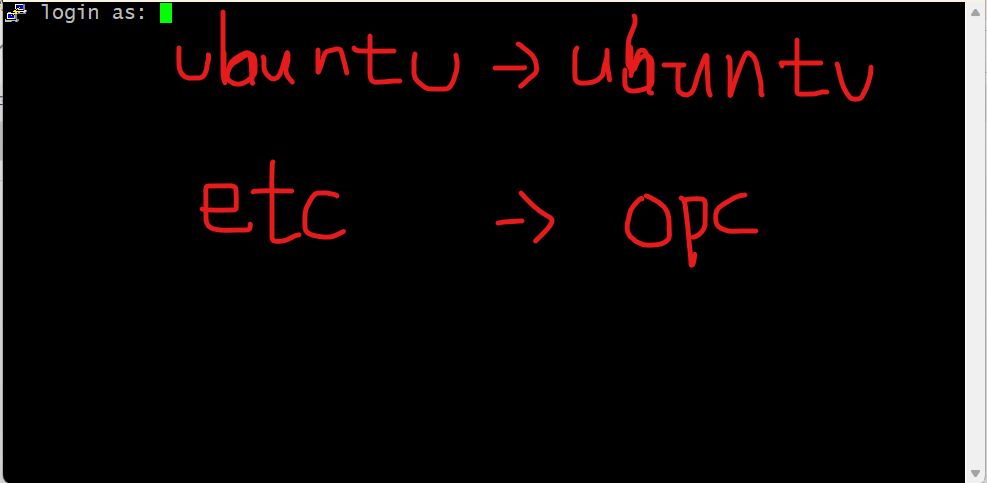 login as:
ubuntu → ubuntu
etc → opc